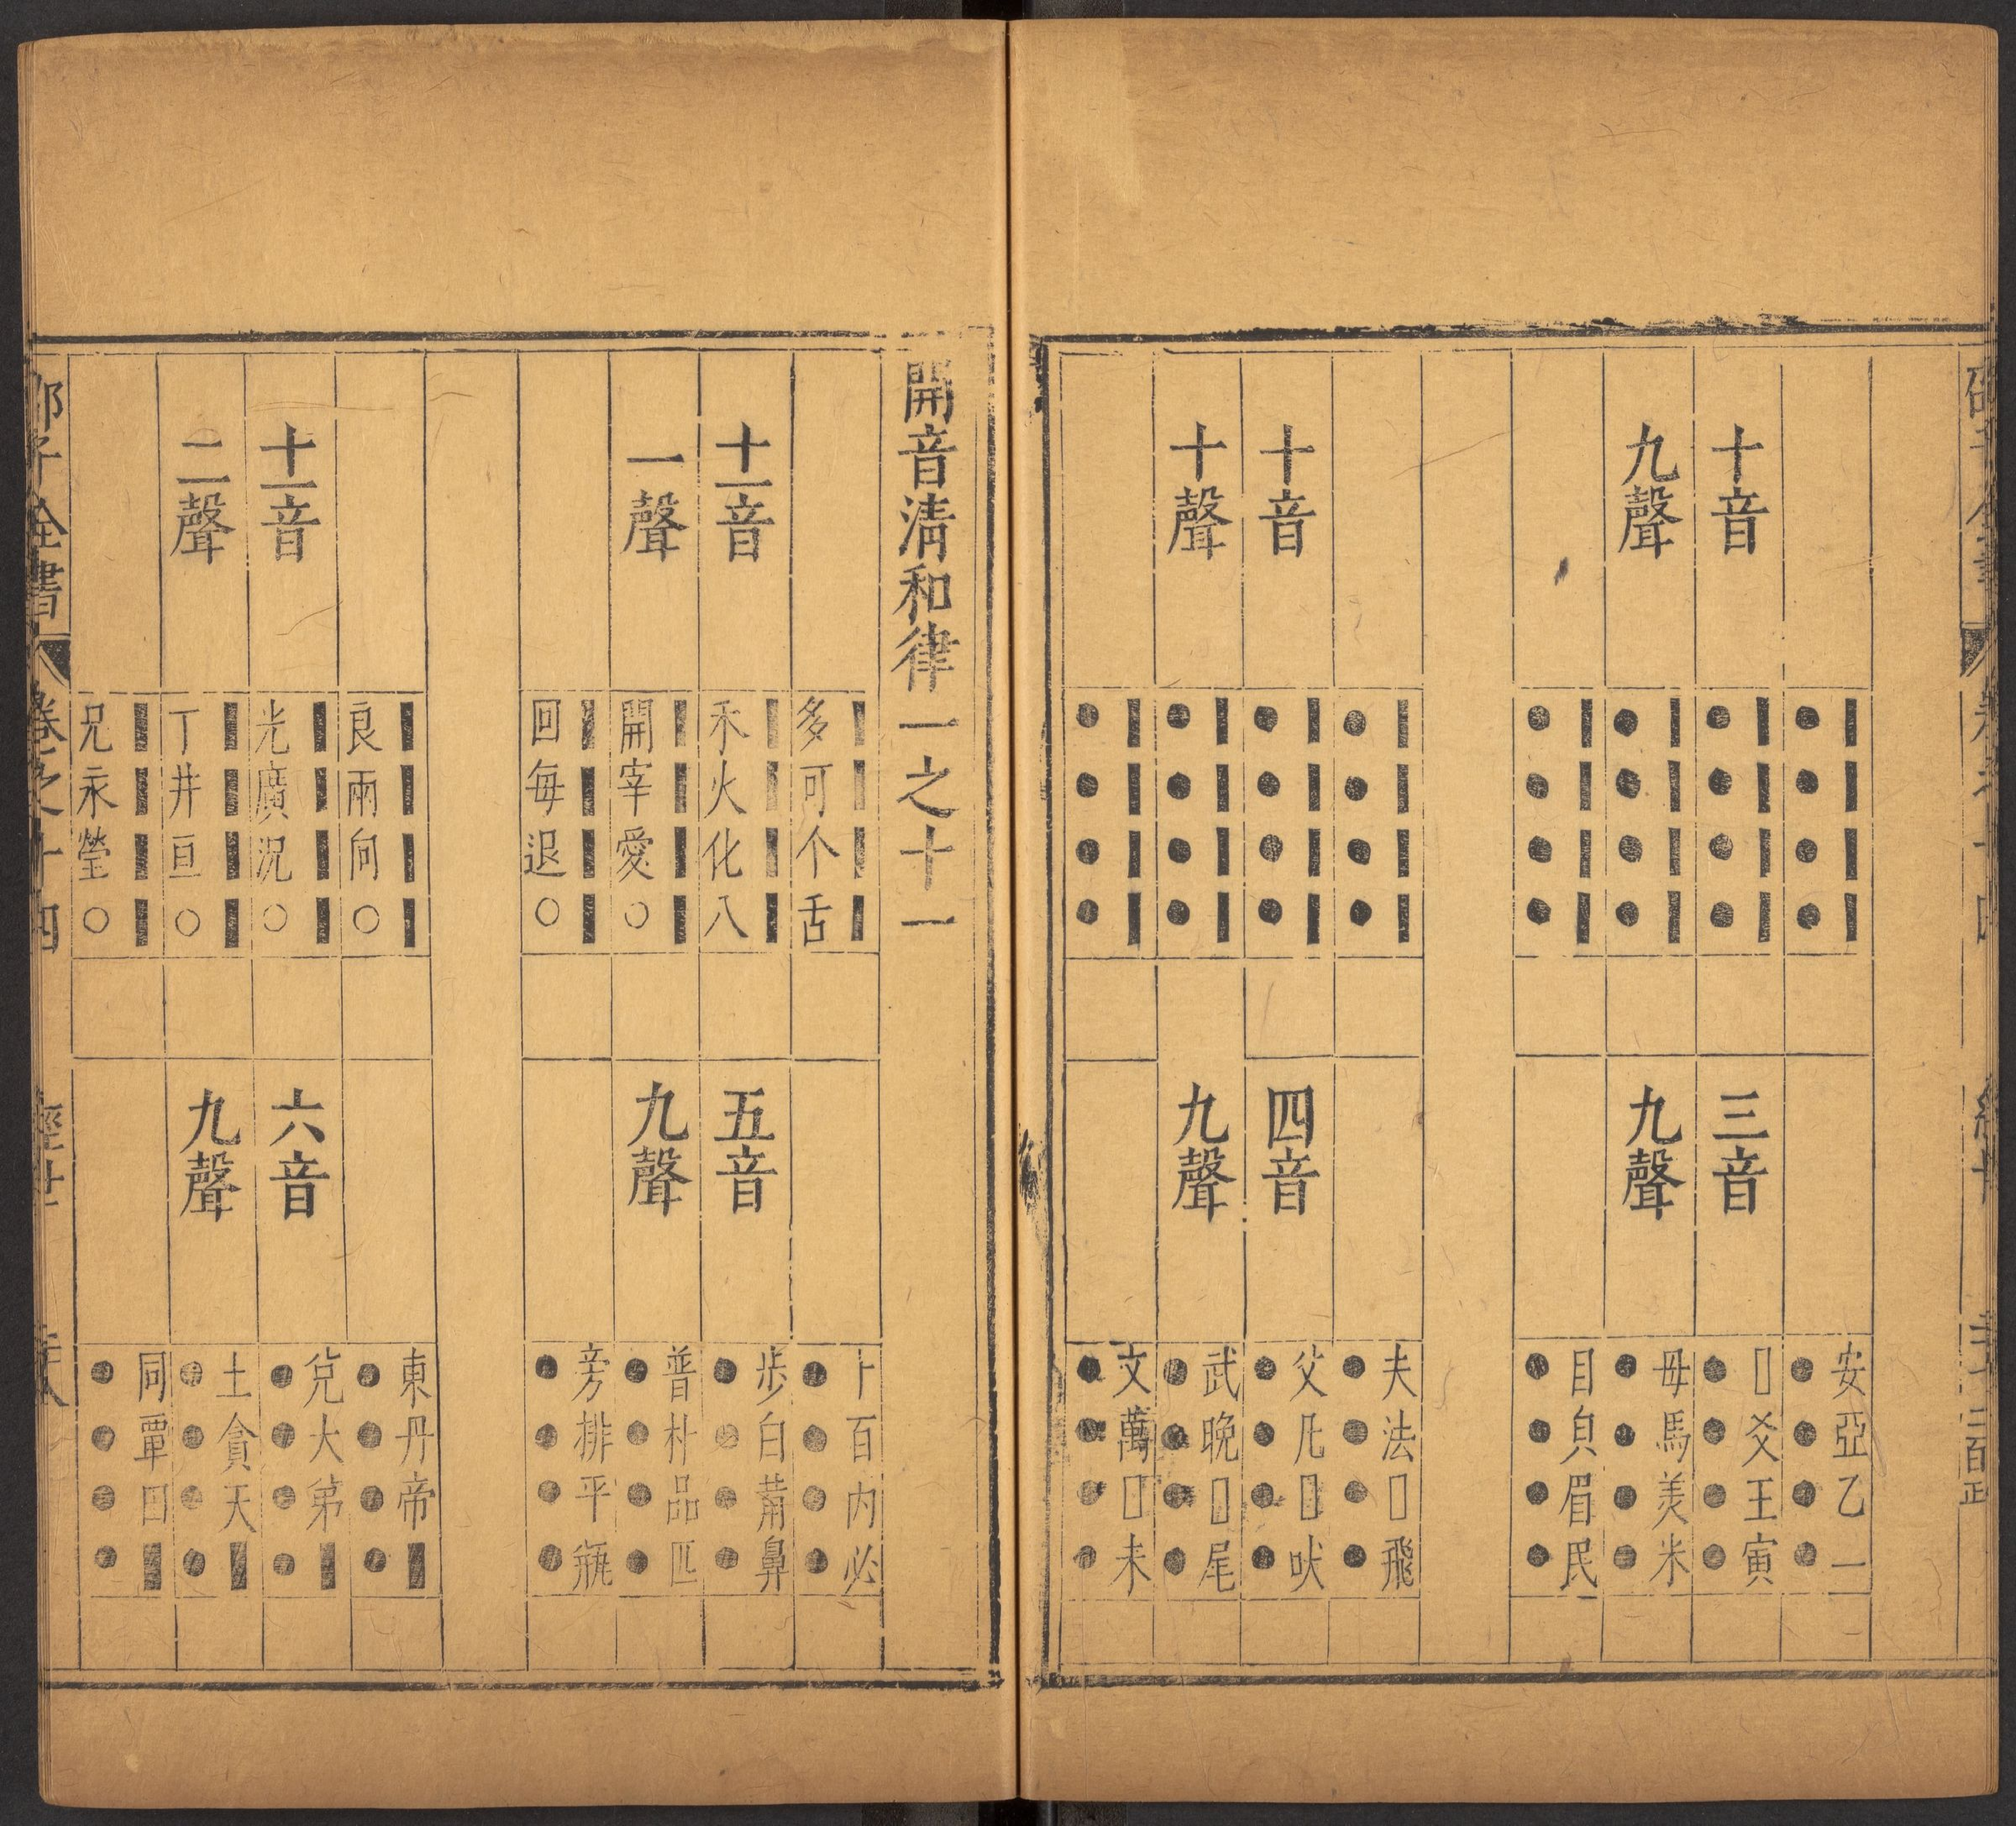 十音
九聲
三音
九聲
安亞乙一
□爻王寅
母馬美米
目皃眉民
十音
十聲
四音
九聲
夫法□飛
父凡□吠
武晚□尾
文萬□未
開音清和律一之十一
十一音
一聲
多可个舌
禾火化八
開宰愛○
回每退○
五音
九聲
卜百丙必
步白葡鼻
普朴品匹
旁排平瓶
十一音
二聲
良兩向○
光廣況○
丁井亘○
兄永瑩○
六音
九聲
東丹帝■
兌大弟■
土貪天■
同覃田■
邵子全書
卷之十四
經世